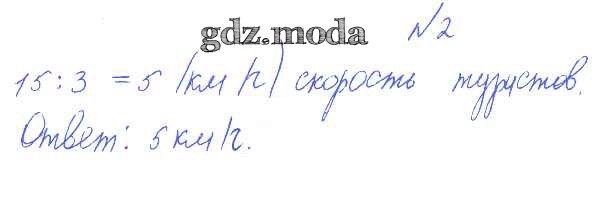 gdz.moda №2
15:3 = 5 (км/ч) скорость туристов.
Ответ: 5 км/ч.